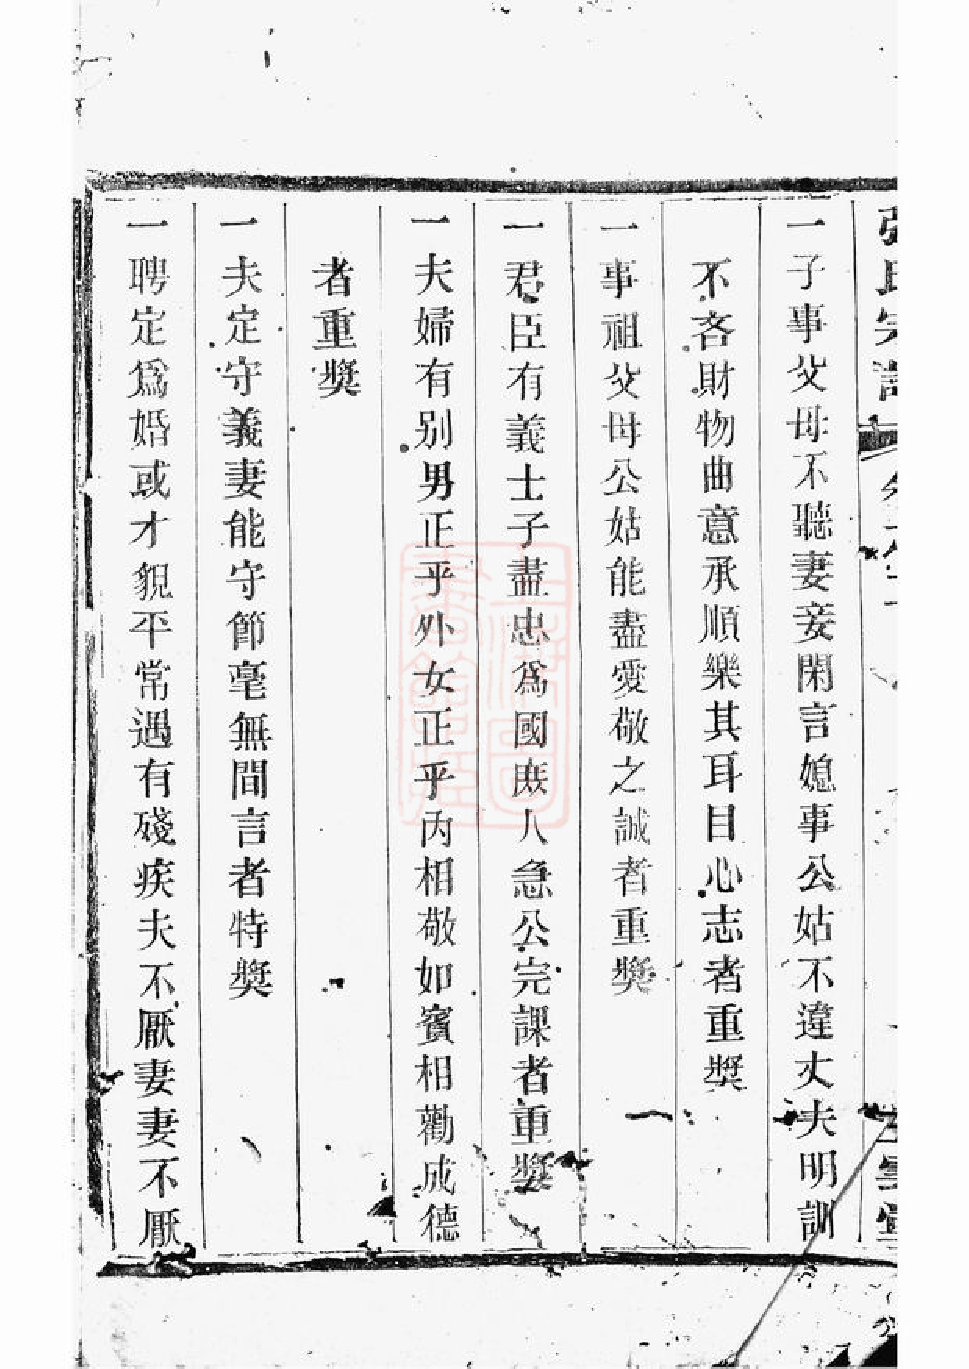 張氏宗譜
一子事父母不聽妻妾閑言媳事公姑不違丈夫明訓
不吝財物曲意承順樂其耳目心志者重獎
一事祖父母公姑能盡愛敬之誠者重獎
一君臣有義士子盡忠爲國庶人急公完課者重獎
一夫婦有别男正乎外女正乎內相敬如賓相勸成德
者重獎
一夫定守義妻能守節毫無間言者特獎
一聘定爲婚或才貌平常遇有殘疾夫不厭妻妻不厭